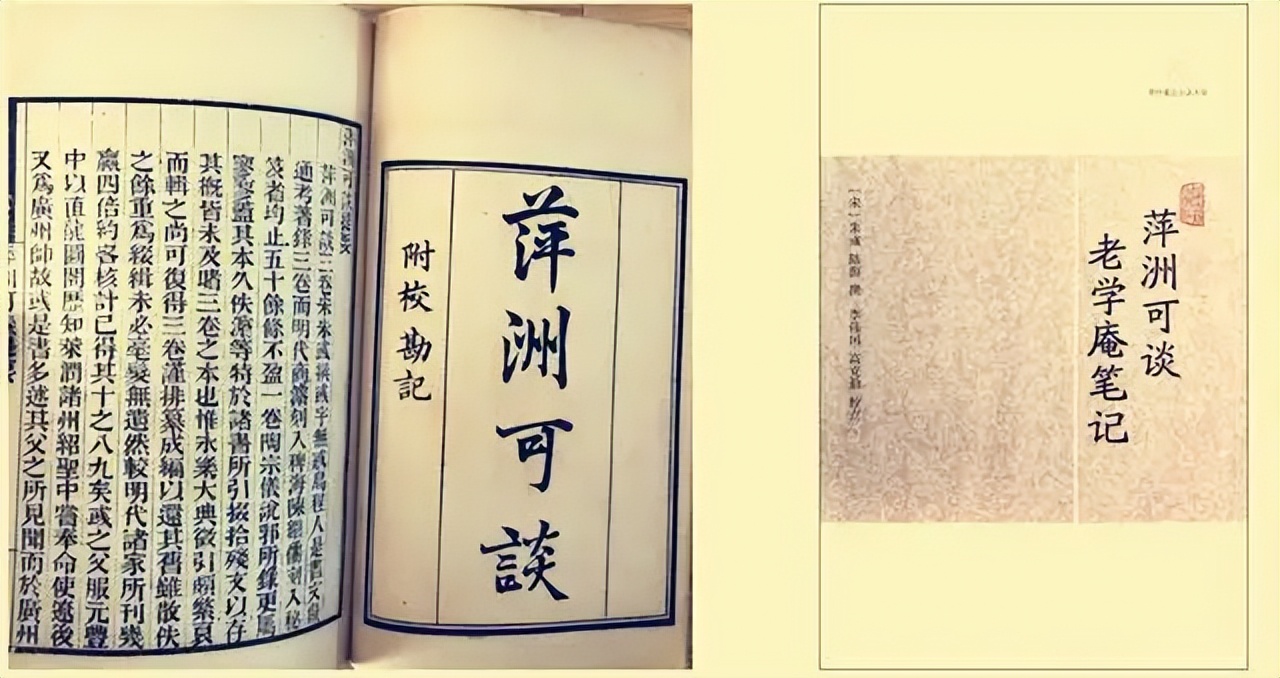 萍洲可談
附校勘記
萍洲可談三卷宋朱彧撰彧字無惑烏程人是書文獻
通考著錄三卷而明代商濬刻入稗海陳繼儒刻入秘
笈者均止五十餘條不盈一卷陶宗儀說郛所錄更屬
寥寥蓋其本久佚濬等特於諸書所引掇拾殘文以存
其概皆未及睹三卷之本也惟永樂大典徵引頗繁裒
而輯之尚可復得三卷謹排纂成編以還其舊雖散佚
之餘重爲綴緝未必毫髮無遺然較明代諸家所刊幾
贏四倍約畧核計已得其十之八九矣彧之父服元豐
中以直龍圖閣歷知萊潤諸州紹聖中嘗奉命使遼後
又爲廣州帥故彧是書多述其父之所見聞而於廣州
萍洲可谈
老学庵笔记
[宋]朱彧 陆游 撰 李伟国 高克勤 校点